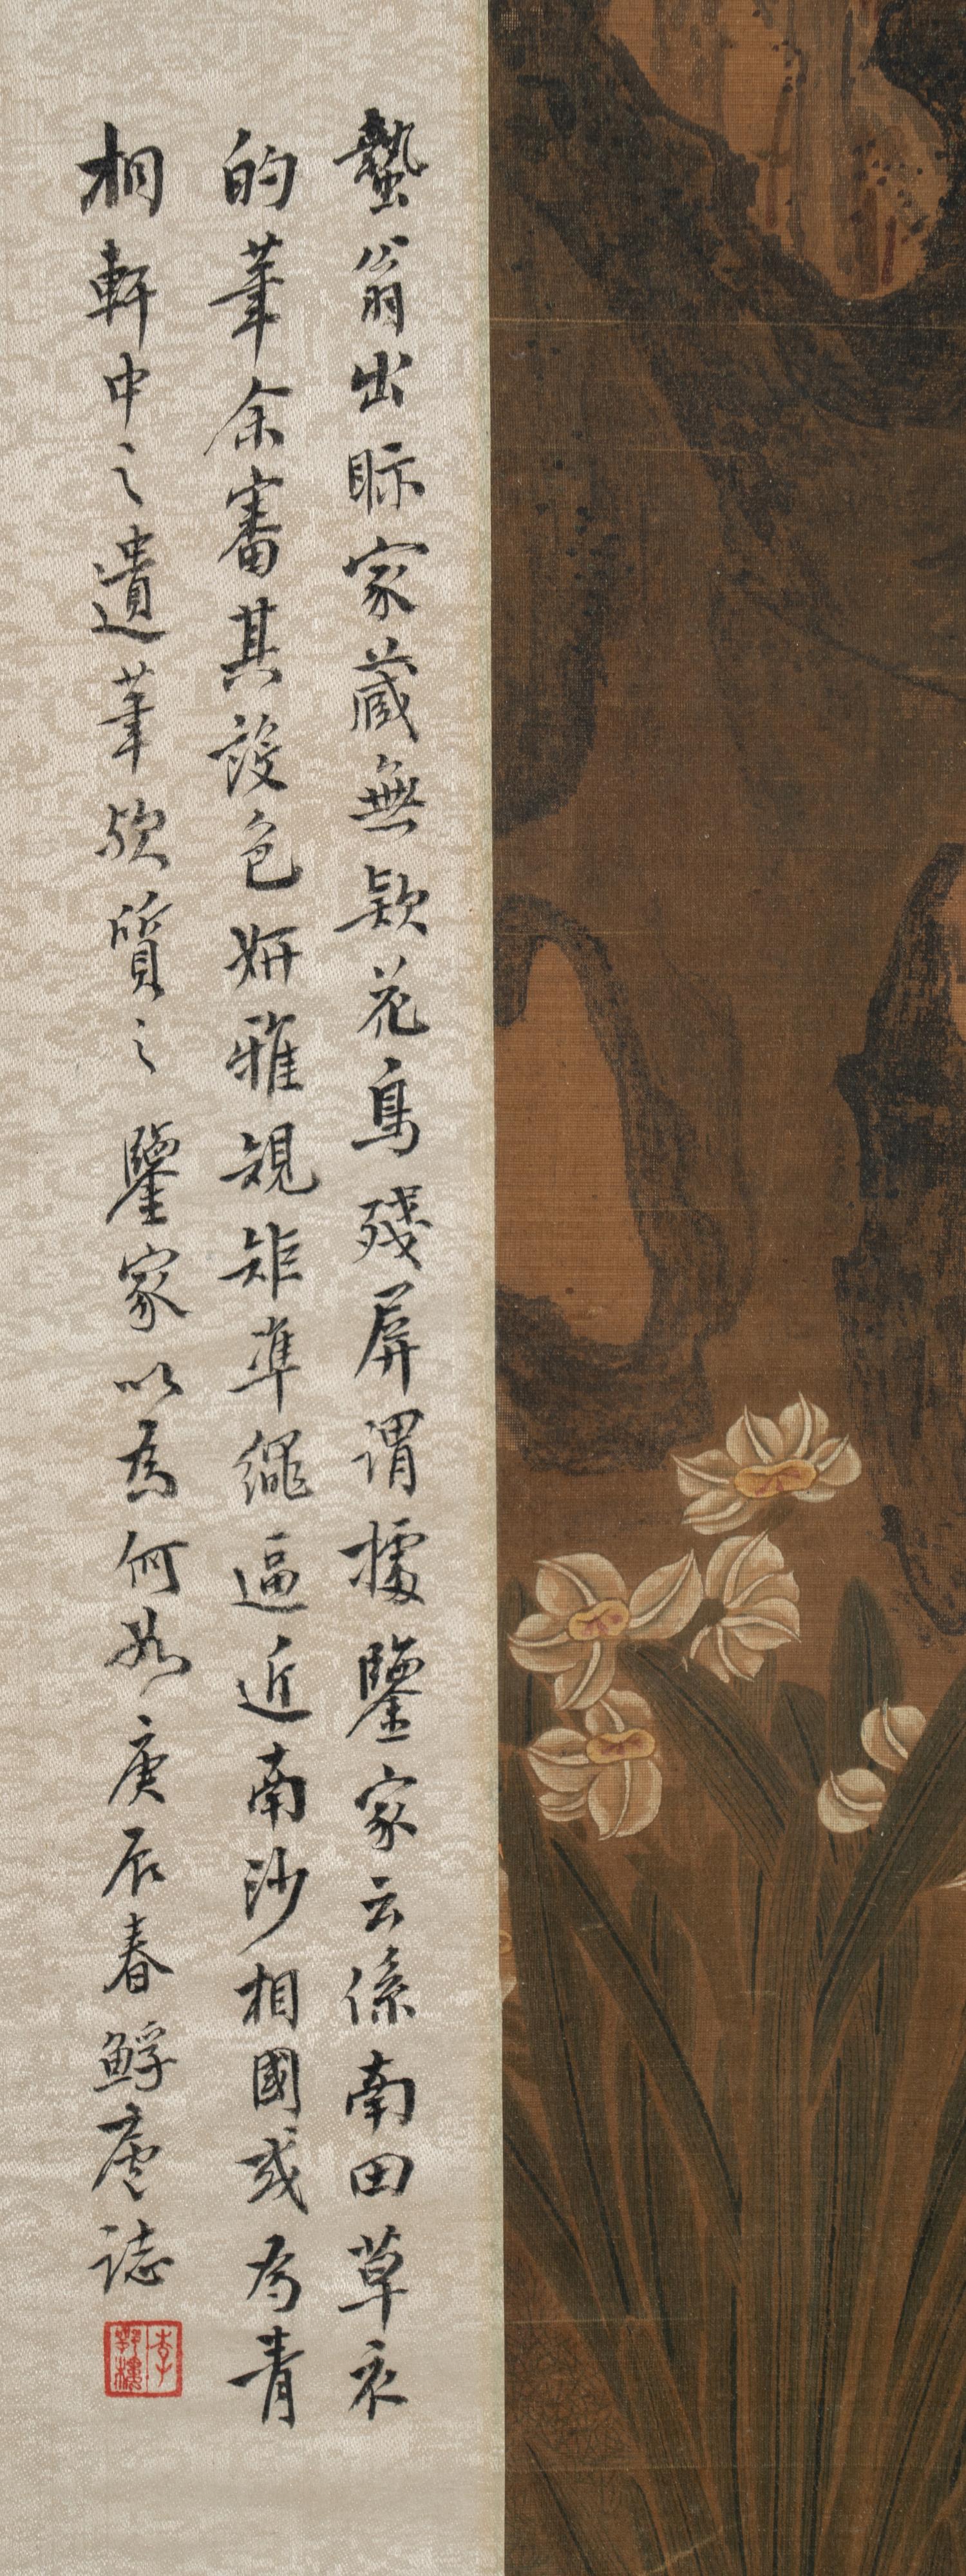 蟄翁出眎家藏無款花鳥殘屏謂據鑒家云係南田草衣
的筆余審其設色妍雅規矩準繩逼近南沙相國或为青
桐軒中之遺筆欤質之鑒家以為何如庚辰春鲟廬誌